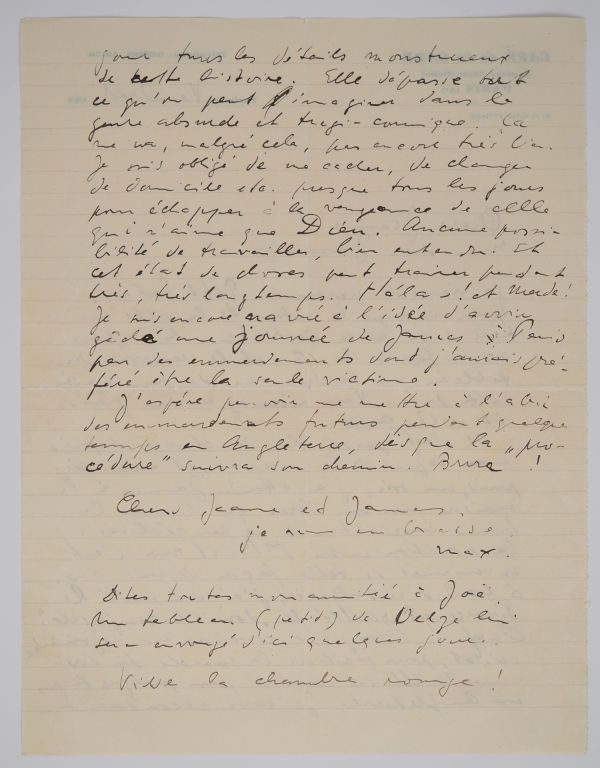 pour tous les détails monstrueux
de cette histoire. Elle dépasse tout
ce qu'on peut s'imaginer dans le
genre absurde et tragi-comique. Ça
ne va, malgré cela, pas encore très bien.
Je suis obligé de me cacher, de changer
de domicile etc. presque tous les jours
pour échapper à la vengeance de celle
qui n'aime que Dieu. Aucune possi-
bilité de travailler, bien entendu. Et
cet état de choses peut traîner pendant
très, très longtemps. Hélas! et Merde!
Je suis encore navré à l'idée d'avoir
gâché une journée de James à Paris
par des emmerdements dont j'aurais pré-
féré être la seule victime.
J'espére pouvoir me mettre à l'abri
des emmerdements futurs pendant quelque
temps en Angleterre, dès que la „pro-
cédure" suivra son chemin. Brrrr!
Chers Jeanne et James,
je vous embrasse
max.
Dites toutes mon amitié à Joë.
Un tableau (petit) de lui
sera envoyé d'ici quelques jours.
Vive la chambre rouge!